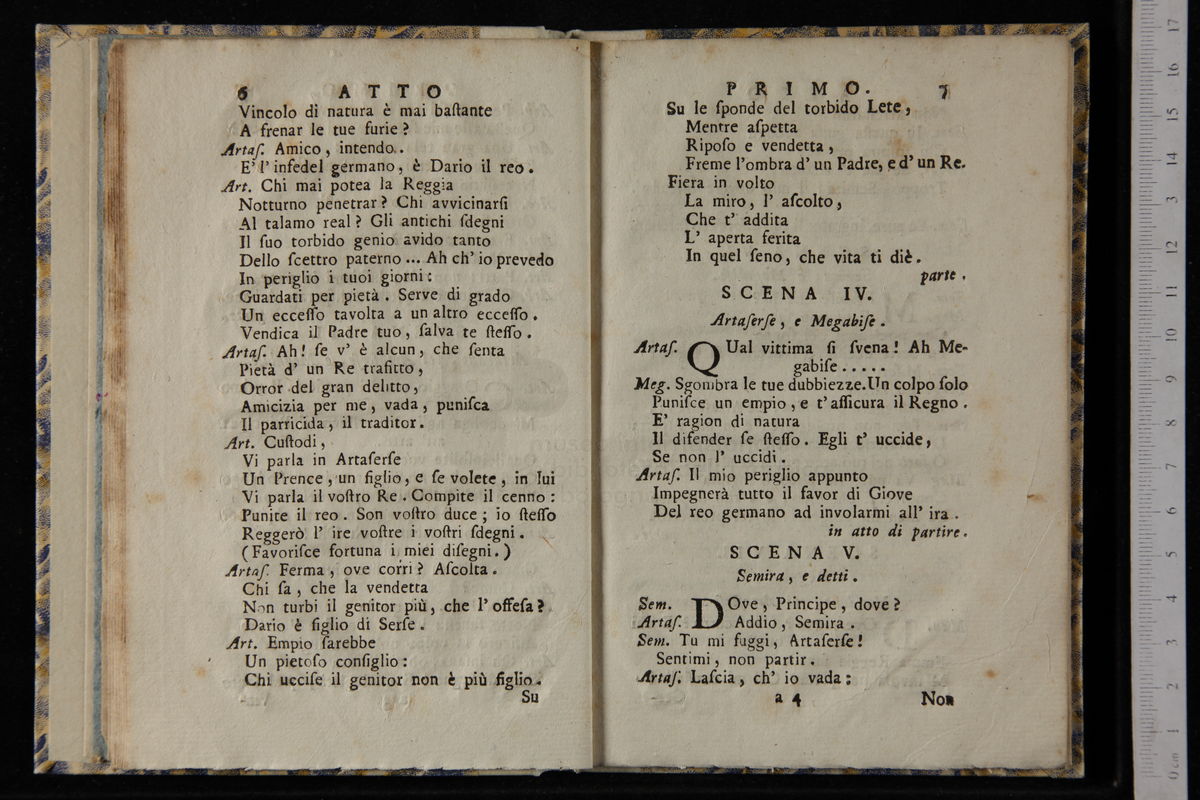 6 ATTO
Vincolo di natura è mai baſtante
A frenar le tue furie?
Artaſ. Amico, intendo..
E' l' infedel germano, è Dario il reo.
Art. Chi mai potea la Reggia
Notturno penetrar? Chi avvicinarſi
Al talamo real? Gli antichi ſdegni
Il ſuo torbido genio avido tanto
Dello ſcettro paterno ... Ah ch' io prevedo
In periglio i tuoi giorni:
Guardati per pietà. Serve di grado
Un ecceſſo tavolta a un altro ecceſſo.
Vendica il Padre tuo, ſalva te ſteſſo.
Artaſ. Ah! ſe v' è alcun, che ſenta
Pietà d' un Re trafitto,
Orror del gran delitto,
Amicizia per me, vada, puniſca
Il parricida, il traditor.
Art. Cuſtodi,
Vi parla in Artaſerſe
Un Prence, un figlio, e ſe volete, in lui
Vi parla il voſtro Re. Compite il cenno:
Punite il reo. Son voſtro duce; io ſteſſo
Reggerò l' ire voſtre i voſtri ſdegni.
(Favoriſce fortuna i miei diſegni.)
Artaſ. Ferma, ove corri? Aſcolta.
Chi ſa, che la vendetta
Non turbi il genitor più, che l' offeſa?
Dario è figlio di Serſe.
Art. Empio ſarebbe
Un pietoſo conſiglio:
Chi ucciſe il genitor non è più figlio.
Su
PRIMO. 7
Su le ſponde del torbido Lete,
Mentre aſpetta
Ripoſo e vendetta,
Freme l'ombra d' un Padre, e d' un Re.
Fiera in volto
La miro, l' aſcolto,
Che t' addita
L' aperta ferita
In quel ſeno, che vita ti diè.
parte.
SCENA IV.
Artaſerſe, e Megabiſe.
Artaſ. QUal vittima ſi ſvena! Ah Me-
gabiſe.....
Meg. Sgombra le tue dubbiezze. Un colpo ſolo
Puniſce un empio, e t' aſſicura il Regno.
E' ragion di natura
Il difender ſe ſteſſo. Egli t' uccide,
Se non l' uccidi.
Artaſ. Il mio periglio appunto
Impegnerà tutto il favor di Giove
Del reo germano ad involarmi all' ira.
in atto di partire.
SCENA V.
Semira, e detti.
Sem. DOve, Principe, dove?
Artaſ. Addio, Semira.
Sem. Tu mi fuggi, Artaſerſe!
Sentimi, non partir.
Artaſ. Laſcia, ch' io vada:
a 4 Non